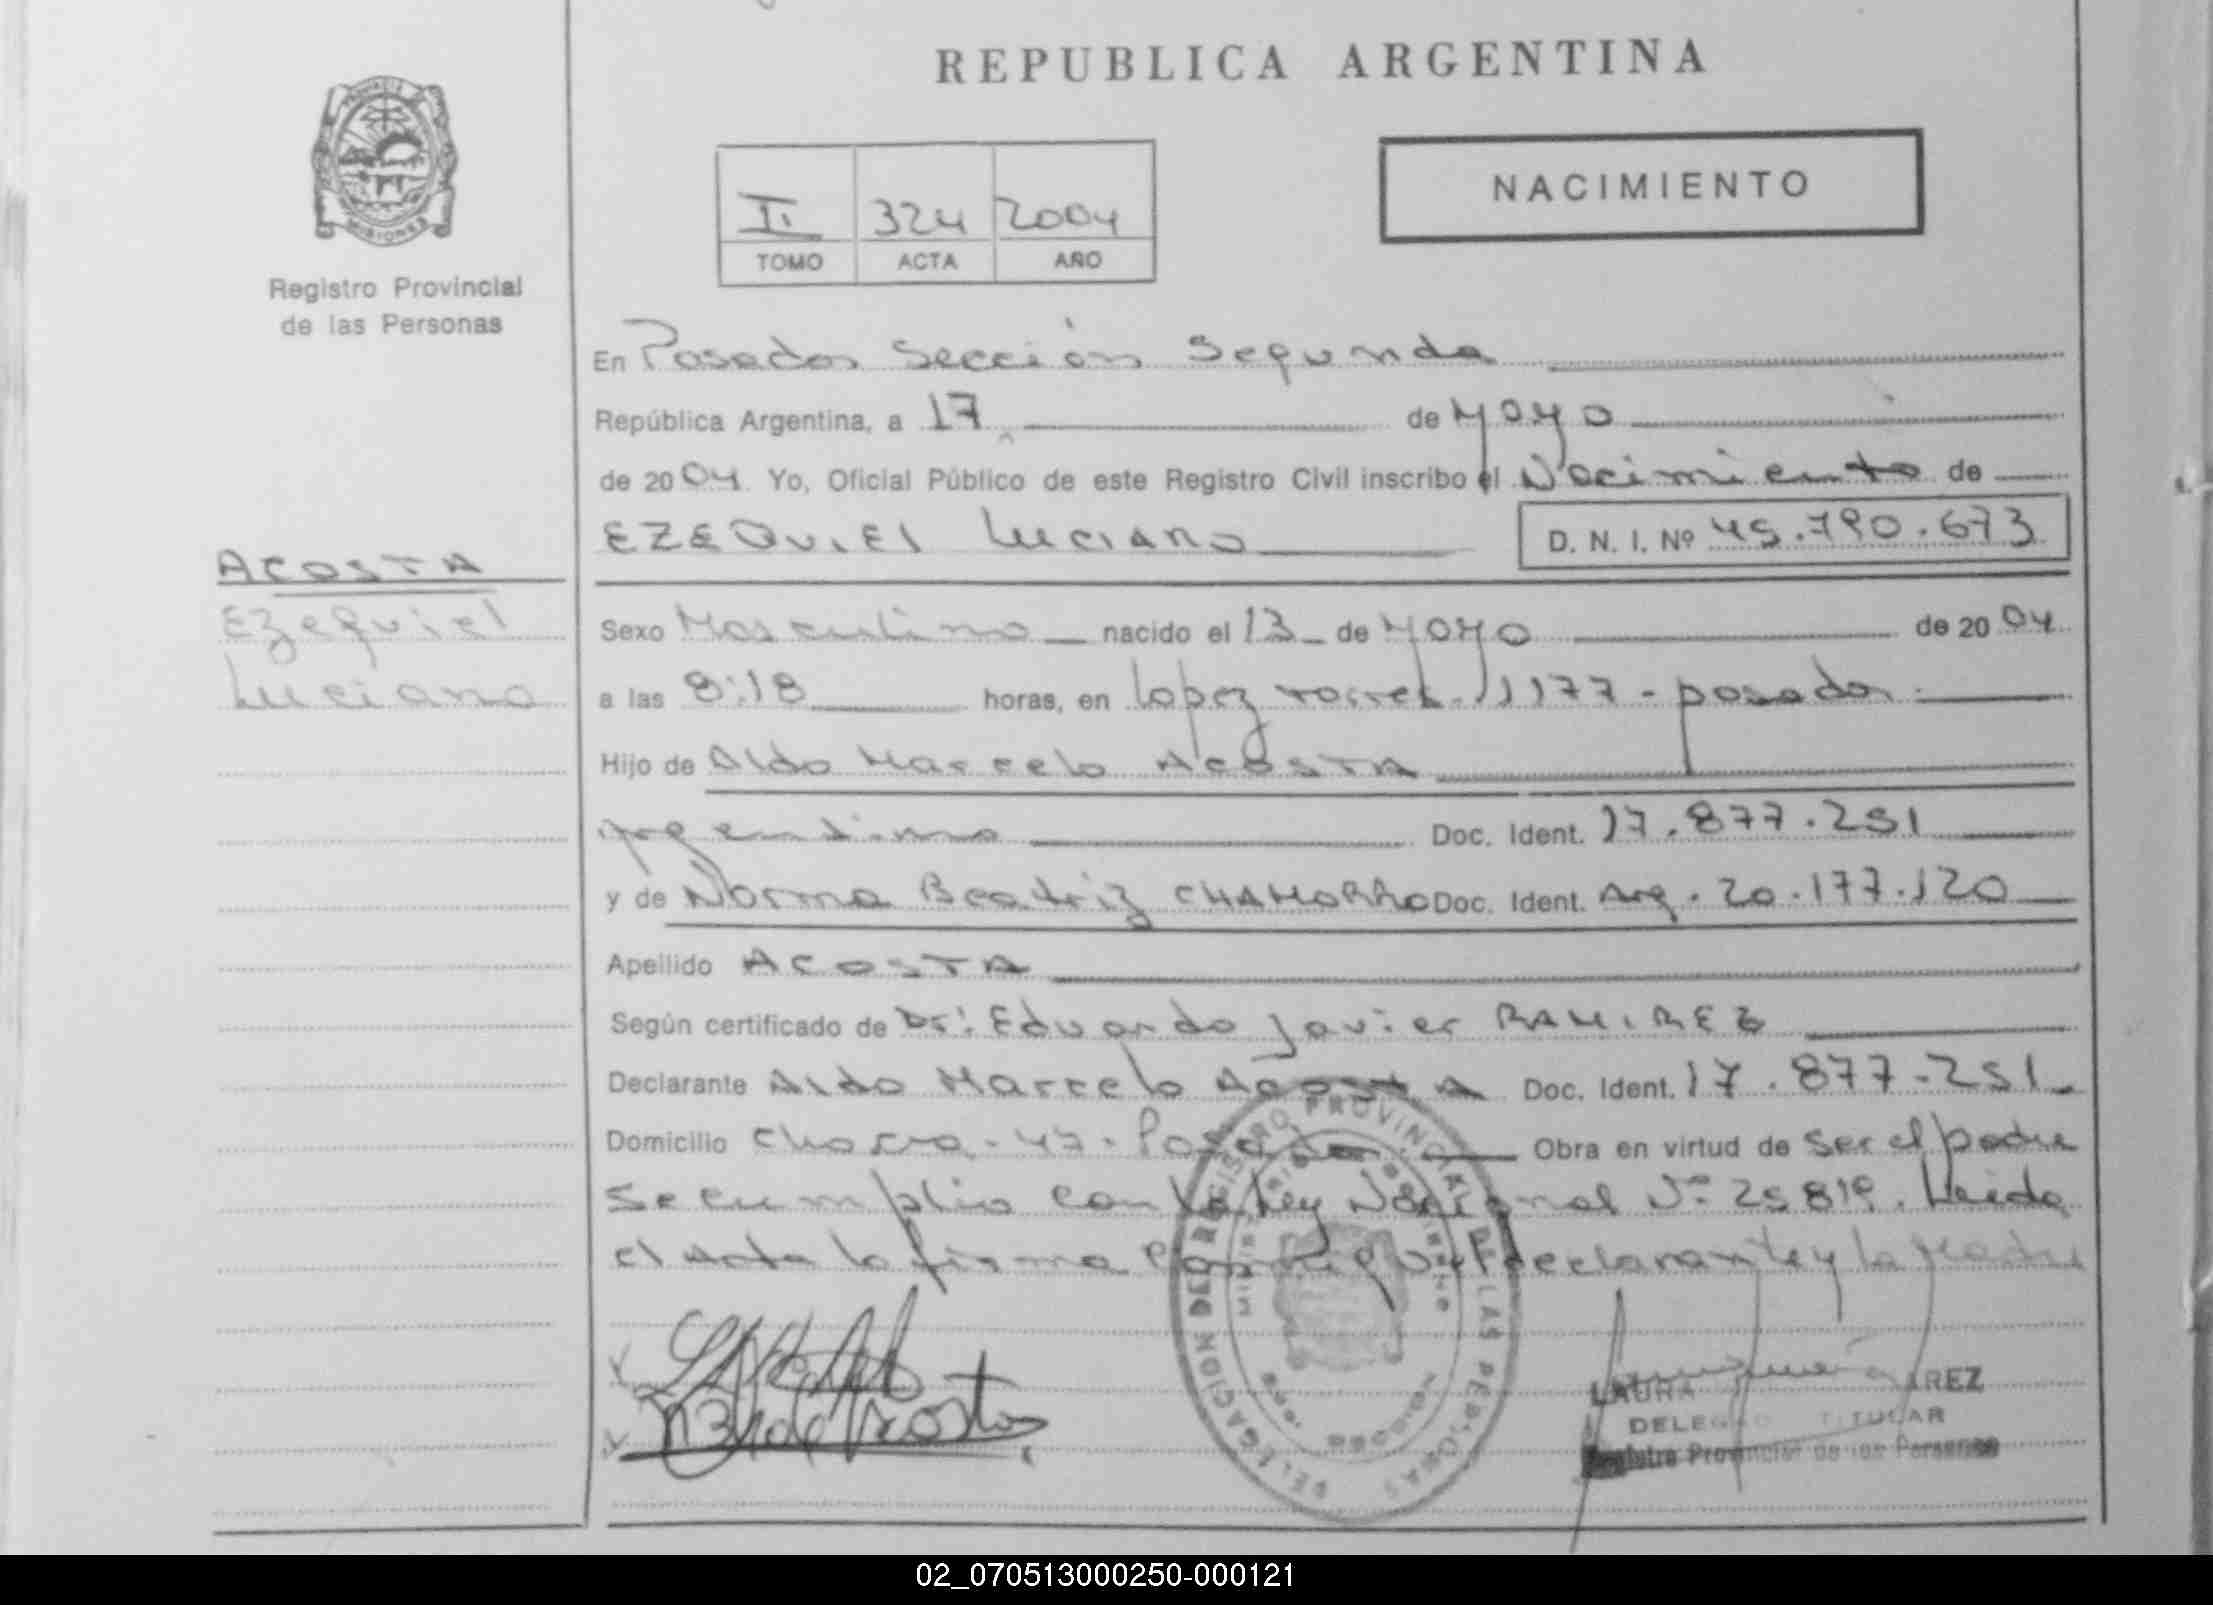 REPUBLICA ARGENTINA
NACIMIENTO
I. 324 2004
TOMO ACTA AÑO
PROVINCIA DE
MISIONES
Registro Provincial
de las Personas
En Posadas Sección Segunda
República Argentina, a 17 de Mayo
de 2004 Yo, Oficial Público de este Registro Civil inscribo el Nacimiento de
EZEQUIEL Luciano D. N. I. Nº 45.790.673
ACOSTA
Ezequiel
Luciano
Sexo Masculino nacido el 13 de Mayo de 2004
a las 8:18 horas, en Lopez torres 1177 - posadas.
Hijo de Aldo Marcelo ACOSTA
Argentino Doc. Ident. 17.877.251
y de Norma Beatriz CHAMORRO Doc. Ident. Arg. 20.177.120
Apellido ACOSTA
Según certificado de Dr. Eduardo Javier RAMIREZ
Declarante Aldo Marcelo Acosta Doc. Ident. 17.877.251
Domicilio Chacra - 47 - Posadas Obra en virtud de ser el padre
se cumplio con la Ley Nacional Nº 25819. Leida
el Acta la firma conmigo el declarante y la Madre
DELEGACION DEL REGISTRO PROVINCIAL DE LAS PERSONAS
LAURA
DELEGADO TITULAR
Registro Provincial de las Personas
02_070513000250-000121